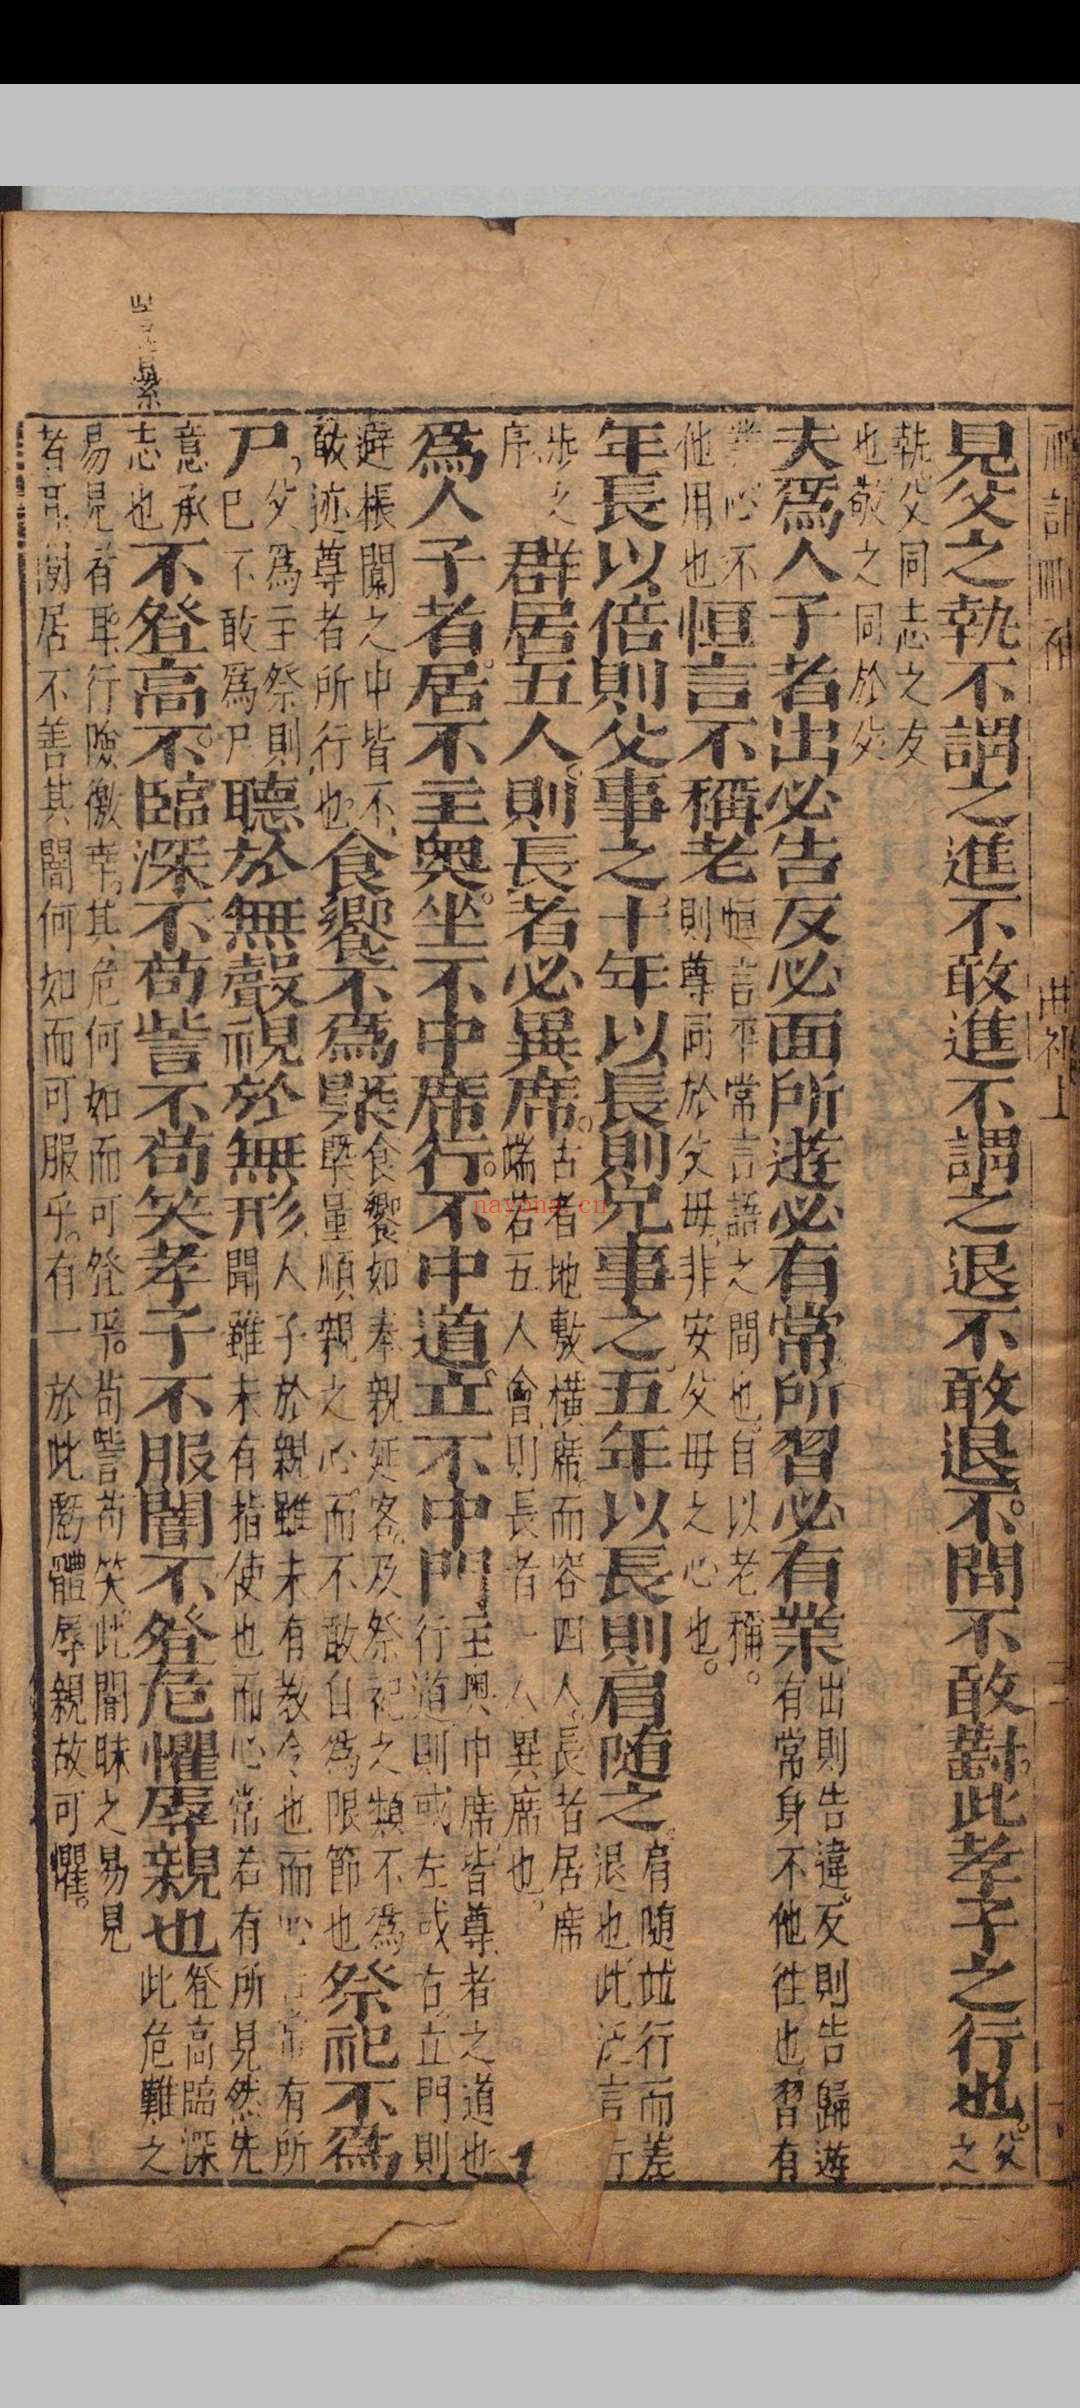 曲禮上
見父之執不謂之進不敢進不謂之退不敢退不問不敢對此孝子之行也父之
執父同志之友
也敬之同於父
夫為人子者出必告反必面所遊必有常所習必有業出則告違反則告歸遊有常身不他往也習有
業心不
他用也
恒言不稱老恒言平常言語之間也自以老稱則尊同於父母非安父母之心也
年長以倍則父事之十年以長則兄事之五年以長則肩隨之肩隨並行而差退也此泛言行
步之
序
群居五人則長者必異席古者地敷橫席而容四人長者居席端若五人會則長者一人異席也
為人子者居不主奧坐不中席行不中道立不中門主奧中席皆尊者之道也行道則或左或右立門則
避棖闑之中皆不
敢迹尊者所行也
食饗不為槩食饗如奉親延客及祭祀之類不為槩量順親之心而不敢自為限節也祭祀不為
尸父為主祭則
已不敢為尸
聽於無聲視於無形人子於親雖未有教令也而心常有所聞雖未有指使也而心常若有所見然先
意承
志也
不登高不臨深不苟訾不苟笑孝子不服闇不登危懼辱親也登高臨深此危難之
易見者耶行險徼幸其危何如而可登乎苟訾苟笑此闇昧之易見
者耳閒居不善其闇何如而可服乎有一於此虧體辱親故可懼
nayona.cn